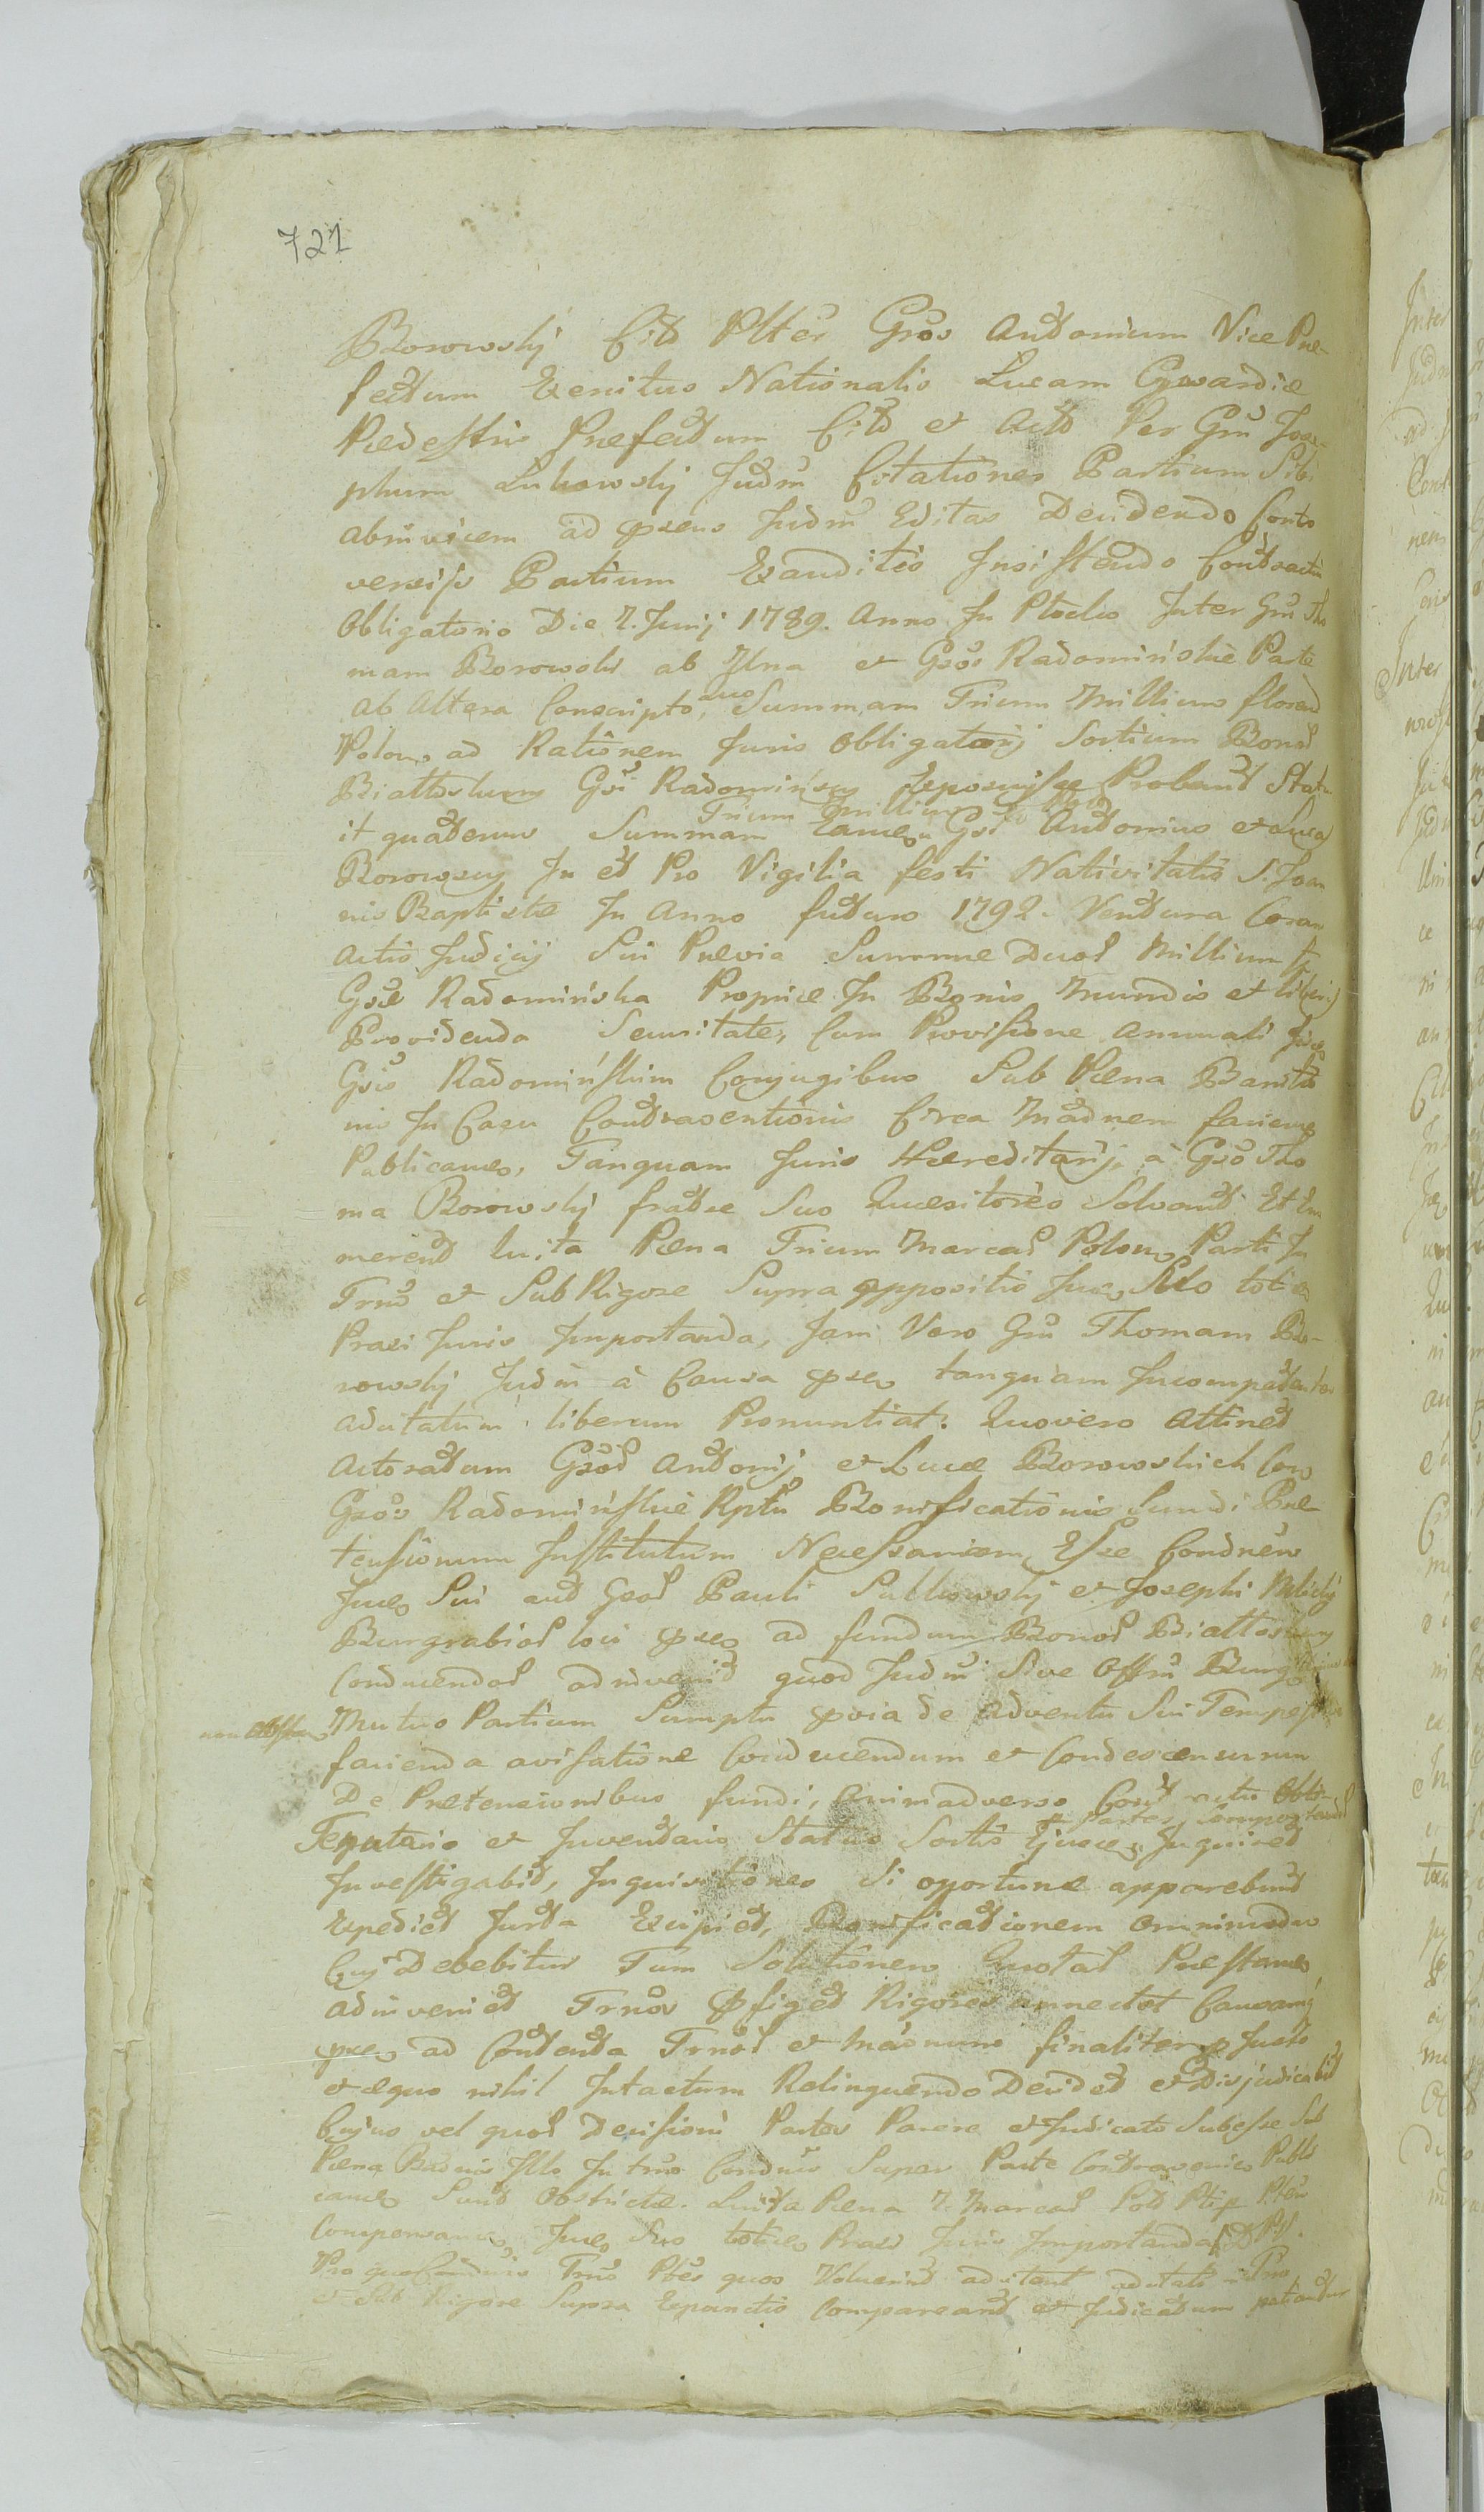 721
Borowskj Citt Plter Gnos Antonium Vice Præ-
fectum Exercitus Nationalis Lucam Gwardiæ
Pedestris Præfectum Citt et Actt Per Gnm Jose-
phum Lukowskj Judm Citationes Partium Sibi
abinvicem ad præns Judm Editas Decidendo Contro
versiis Partium Exauditis Insistendo Contractui
Obligatorio Die 7. Junij 1789. Anno In Plocko Inter Gnm Tho
mam Borowski ab Una et Gnos Radomińskie Parte
ab Altera Conscripto, quo Summam Trium Millium floren
Polon, ad Rationem Juris Obligatorij Sortium Bonor
Białłoskury Gni Radomińscy Exposuisse Probant Statu
it quatenus Summam Trium Millium eamq Gni Antonius et Lucas
Borowscy In et Pro Vigilia festi Nativitatis S. Joan
nis Baptistæ In Anno futuro 1792. Ventura Coram
Actis Judicij Sui Prævia Summæ Duor Millium f
Gnæ Radomińska Propriæ In Bonis Mundis et liberis
Providenda Securitate, Cum Provisione Annuali
Gnis Radomińskim Conjugibus Sub Pæna Banitio
nis In Casu Contraventionis Circa Mandnem facienq
Publicanq, Tanquam Juris Hæreditarij à Gno Tho
ma Borowskj fratre Suo Quæsitores Solvant Et Enu
merent luita Pæna Trium Marcar Polon, Parti In
Trno et Sub Rigore Supra appositis Juq Suo toties
Praxi Juris Importanda, Jam Vero Gnm Thomam Bo-
rowskj Judm à Causa præq tanquam Incompetenter
adcitatum liberum Pronuntiat: Quovero Attinet
Actoratum Gnor Antonij et Lucæ Borowskich Con
Gnos Radomińskie Rptu Bonificationis fundi Præ-
tensionum Institutum Necessariam Esse Condnem
Juq Sui aut Gnor Pauli Sulkowskj et Josephi
Burgrabior loci præq ad fundum Bonor Białłoskury
Conducendor adinvenit quod Judm Sive Offm Burg
non obstan Mutuo Partium Sumptu prvia de adventu Sui Tempestive
facienda avisatione Conducendum et Condescensurum
De Prætensionibus fundi, Animadverso Contractu Obli-
Teputario et Inventario Status Sortis Ejusce p Partes Comportandor Inquiret
Investigabit, Inquisitiones Si oportunæ apparebunt
Expediet Jurta Excipiet, Bonificationem omnimodam
Cuj Debebitur Tum Solutionem Quotar Præstanq
adinveniet Trnos Pfiget Rigores annectet Causamq
præq ad Contenta Trnor et Madnum finaliter Justo
et æquo nihil Intactum Relinquendo Decidet et Disjudicabit
Cujus vel quor Decisioni Partes Parere et Judicato Subesse Sub
Pæna Badnis Illo In trno Conduis Super Parte Contravenien Publi
canq Sunt Obstrictæ. Luita Pæna 7. Marcar Polt Ptip Ptem
Compensanq Juq Suo toties Praxi Juris Importanda
Pro quo Conduis Trno Ptes quos Voluerint adcitent adcitati
et Sub Rigore Supra Expunctis Compareant et Judicatum patiantur